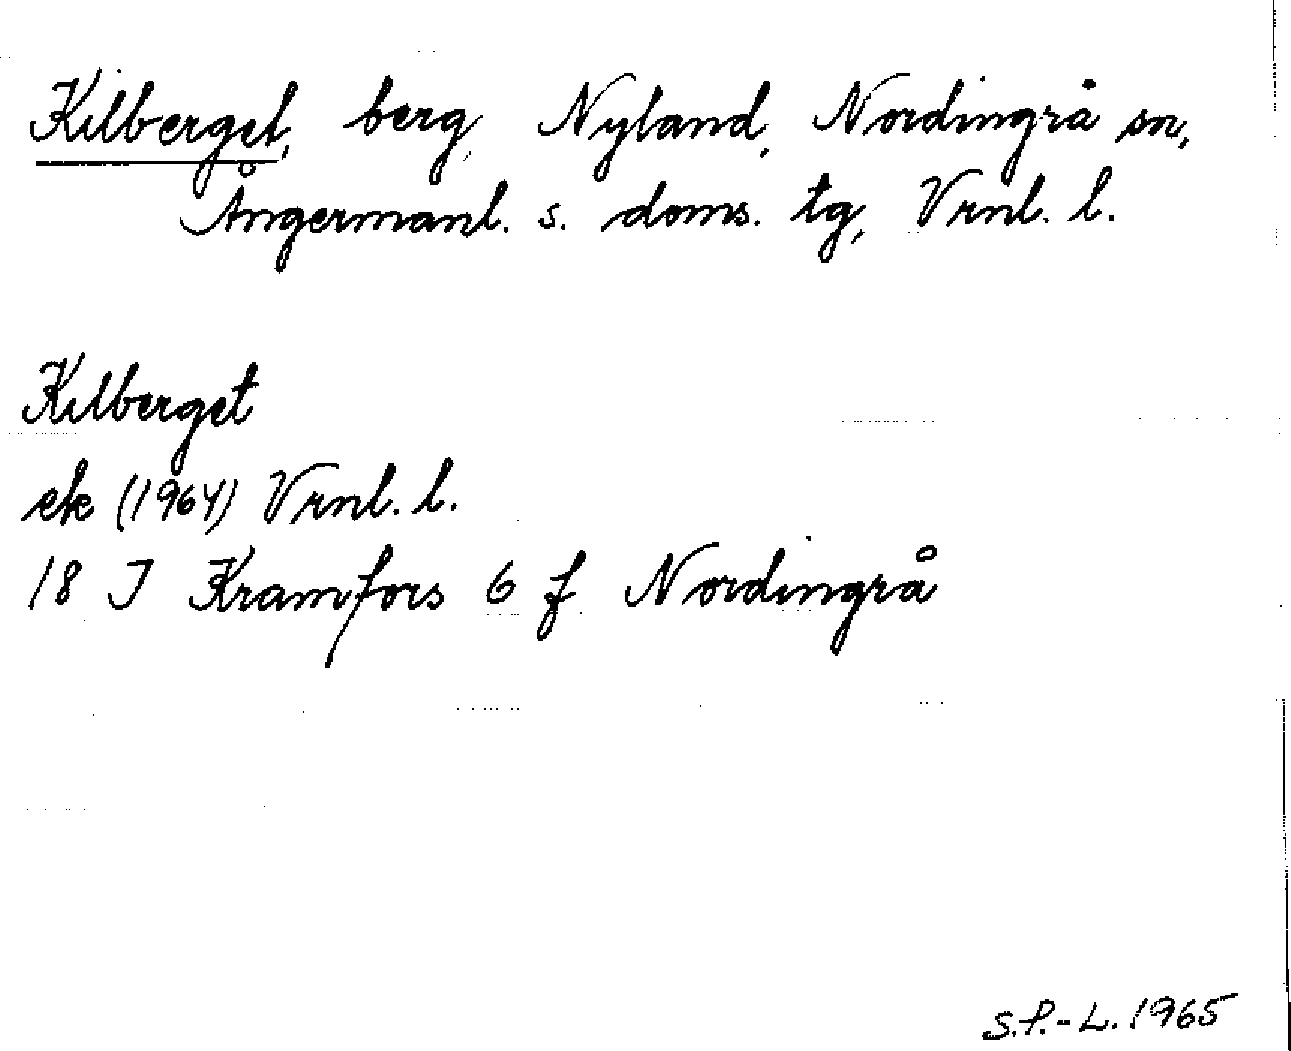 Kilberget, berg, Nyland, Nordingrå sn,
Ångermanl. s. doms. tg, Vrnl. l.
Kilberget
ek (1964) Vrnl. l.
18 J Kramfors 6 f Nordingrå
S.P.-L. 1965